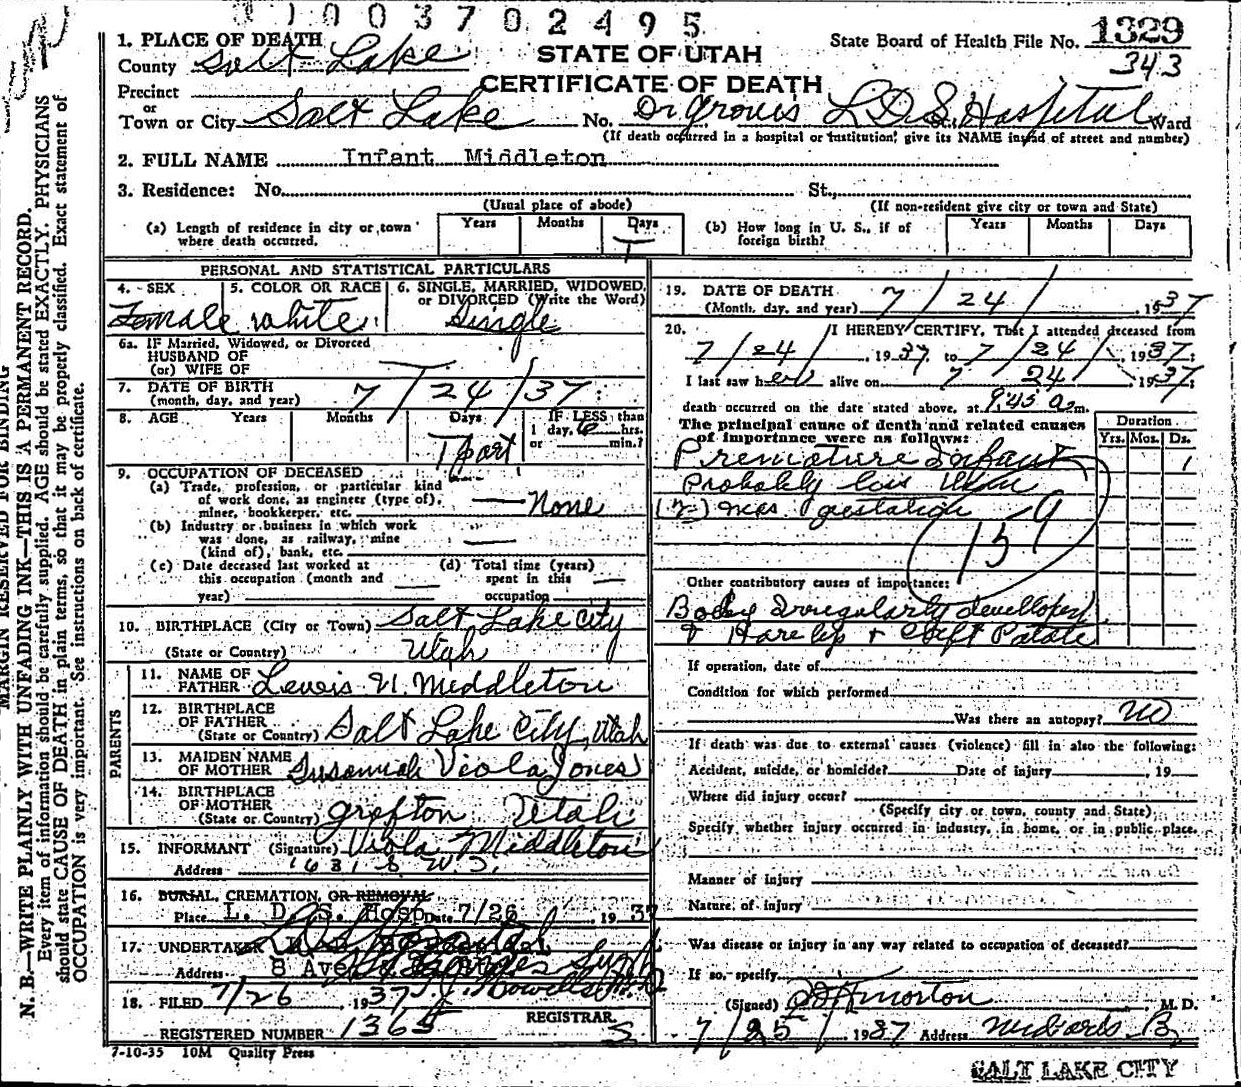 1 0 0 3 7 0 2 4 9 5
1329
343
State Board of Health File No.
STATE OF UTAH
CERTIFICATE OF DEATH
1. PLACE OF DEATH
County Salt Lake
Precinct
or
Town or City Salt Lake No. Dr Groves L.D.S. Hospital Ward
(If death occurred in a hospital or institution, give its NAME instead of street and number)
2. FULL NAME Infant Middleton
3. Residence: No. St.,
(Usual place of abode) (If non-resident give city or town and State)
(a) Length of residence in city or town where death occurred. Years Months Days
(b) How long in U. S., if of foreign birth? Years Months Days
PERSONAL AND STATISTICAL PARTICULARS
4. SEX 5. COLOR OR RACE 6. SINGLE, MARRIED, WIDOWED, or DIVORCED (Write the Word)
Female white Single
6a. IF Married, Widowed, or Divorced
HUSBAND OF
(or) WIFE OF
7. DATE OF BIRTH
(month, day, and year) 7/24/37
8. AGE Years Months Days IF LESS than
1 day, 6 hrs.
or min.?
part
9. OCCUPATION OF DECEASED
(a) Trade, profession, or particular kind
of work done, as engineer (type of),
miner, bookkeeper, etc. None
(b) Industry or business in which work
was done, as railway, mine
(kind of), bank, etc.
(c) Date deceased last worked at this occupation (month and year)
(d) Total time (years) spent in this occupation
10. BIRTHPLACE (City or Town) Salt Lake City
(State or Country) Utah
PARENTS
11. NAME OF FATHER Lewis N. Middleton
12. BIRTHPLACE OF FATHER
(State or Country) Salt Lake City, Utah
13. MAIDEN NAME OF MOTHER Susannah Viola Jones
14. BIRTHPLACE OF MOTHER
(State or Country) Grafton Utah
15. INFORMANT (Signature) Viola Middleton
Address 1631 S. W. T.
16. BURIAL, CREMATION, OR REMOVAL
Place L. D. S. Hosp Date 7/26 1937
17. UNDERTAKER
Address 8 Ave
18. FILED 7/26 1937 T. J. Howells M.D
REGISTRAR
REGISTERED NUMBER 1365
7-10-35 10M Quality Press
19. DATE OF DEATH
(Month, day, and year) 7/24/ 1937
20. I HEREBY CERTIFY, That I attended deceased from
7/24/ 1937, to 7/24 1937;
I last saw her alive on 7 24 1937
death occurred on the date stated above, at 9:45 a.m.
The principal cause of death and related causes
of importance were as follows:
Duration
Yrs. Mos. Ds.
Premature Infant 1
Probably less than
(7) mos. gestation
159
Other contributory causes of importance:
Body Irregularly Developed
& Harelip & Cleft Palate
If operation, date of
Condition for which performed
Was there an autopsy? no
If death was due to external causes (violence) fill in also the following:
Accident, suicide, or homicide? Date of injury , 19
Where did injury occur?
(Specify city or town, county and State)
Specify whether injury occurred in industry, in home, or in public place.
Manner of injury
Nature of injury
Was disease or injury in any way related to occupation of deceased?
If so, specify
(Signed) Morton M. D.
7/25/ 1937 Address
SALT LAKE CITY
MARGIN RESERVED FOR BINDING
N. B.—WRITE PLAINLY WITH UNFADING INK—THIS IS A PERMANENT RECORD.
Every item of information should be carefully supplied. AGE should be stated EXACTLY. PHYSICIANS
should state CAUSE OF DEATH in plain terms, so that it may be properly classified. Exact statement of
OCCUPATION is very important. See instructions on back of certificate.